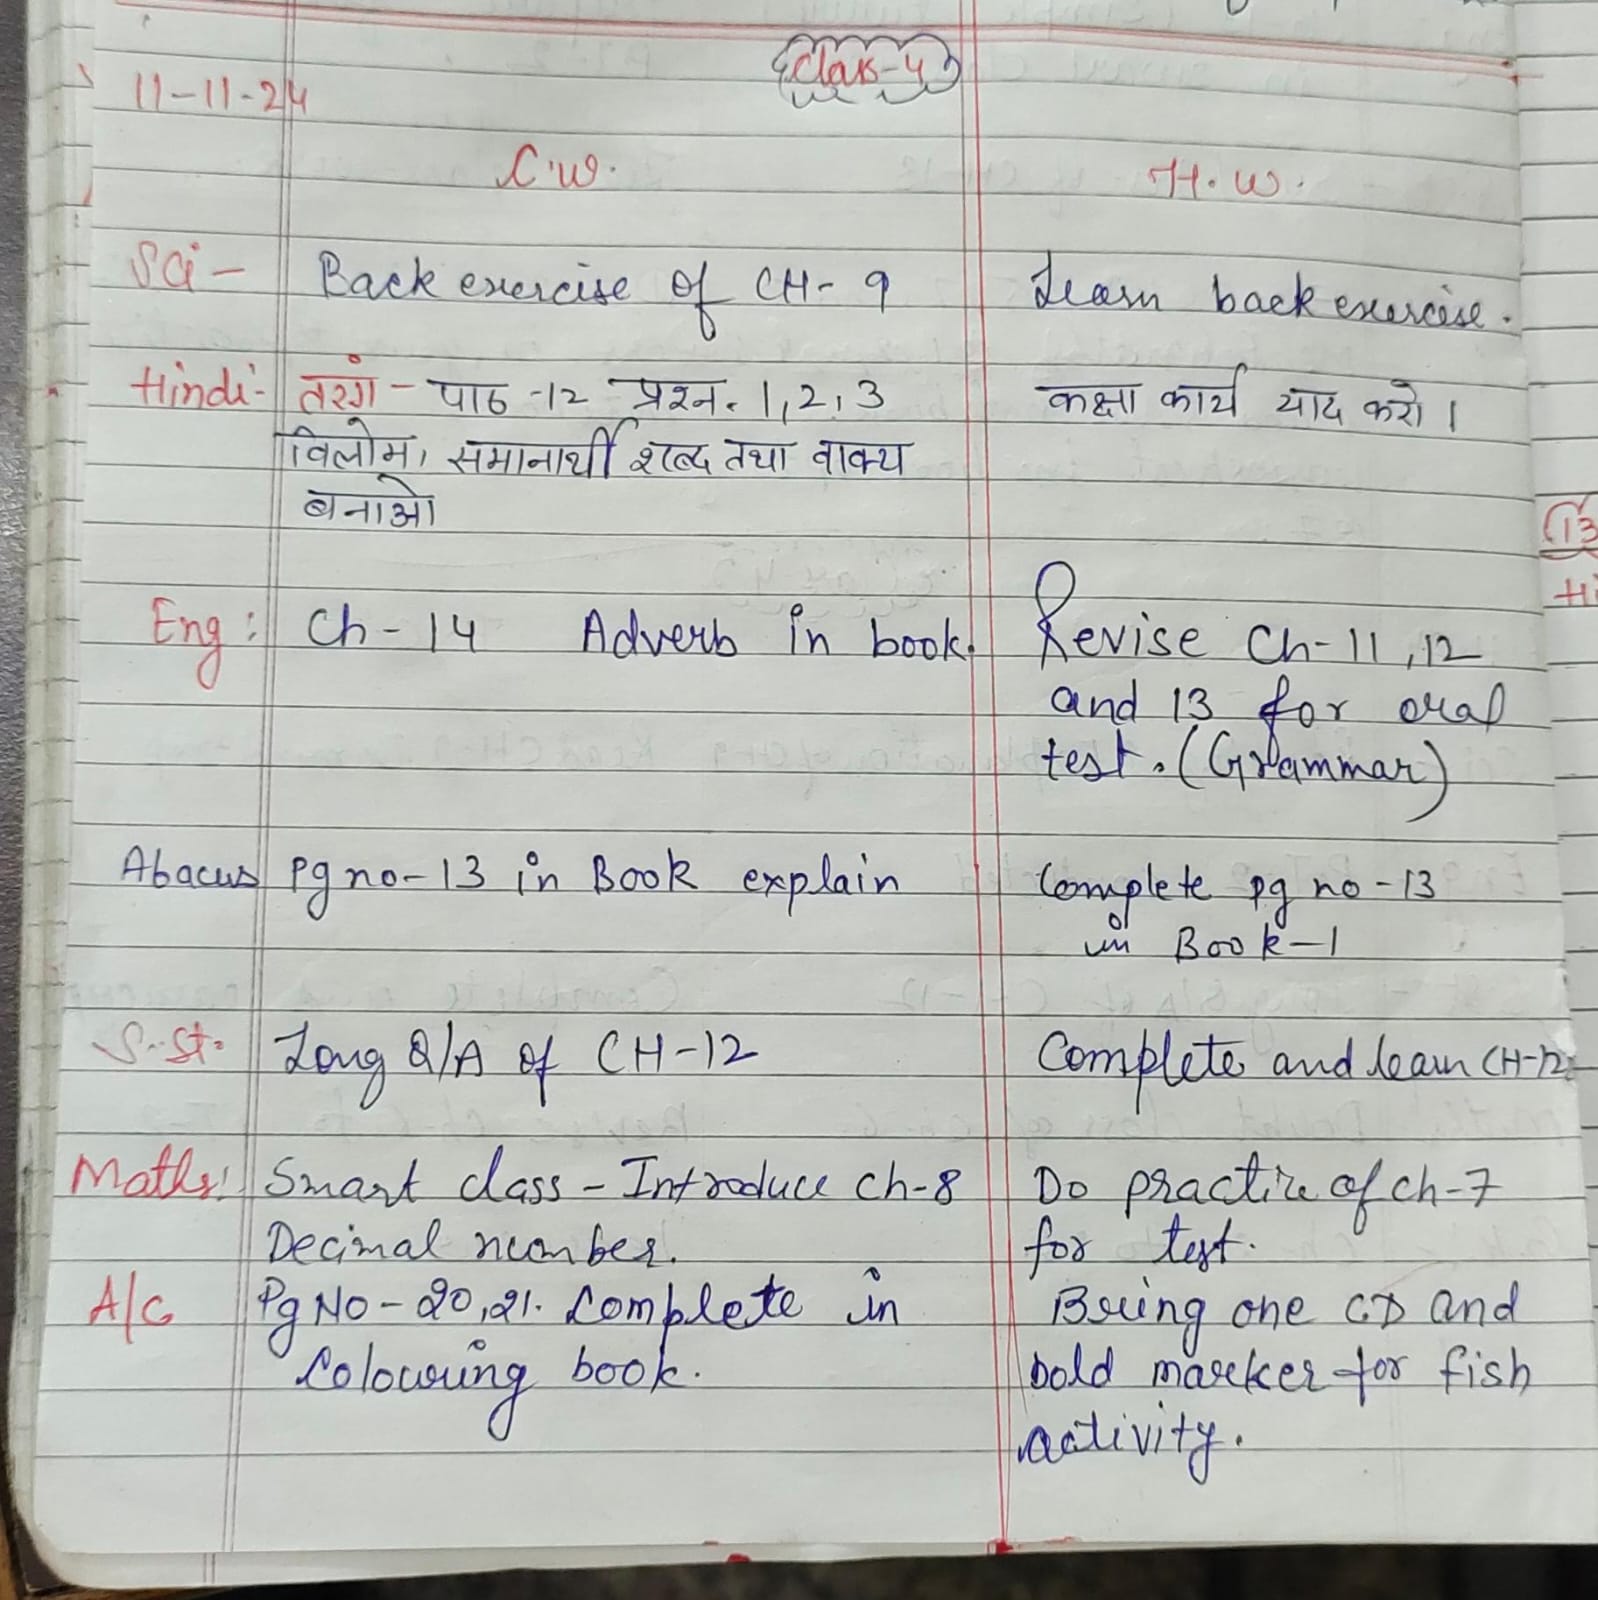 Class-4
11-11-24
C.W. H.W.
Sci - Back exercise of CH- 9 Learn back exercise.
Hindi- तरंग - पाठ -12 प्रश्न. 1,2,3 कक्षा कार्य याद करो ।
विलोम, समानार्थी शब्द तथा वाक्य
बनाओ
Eng: Ch-14 Adverb in book. Revise Ch-11,12
and 13 for oral
test. (Grammar)
Abacus Pg no-13 in Book explain Complete pg no-13
in Book-1
S.St. Long Q/A of CH-12 Complete and learn CH-12
Maths: Smart class - Introduce ch-8 Do practice of ch-7
Decimal number. for test.
A/C Pg No-20,21. Complete in Bring one CD and
Colouring book. bold marker for fish
activity.
13
Hi